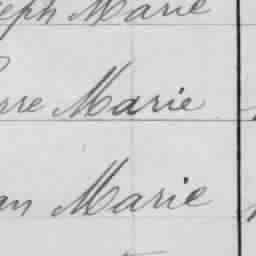 eph Marie
rre Marie
an Marie